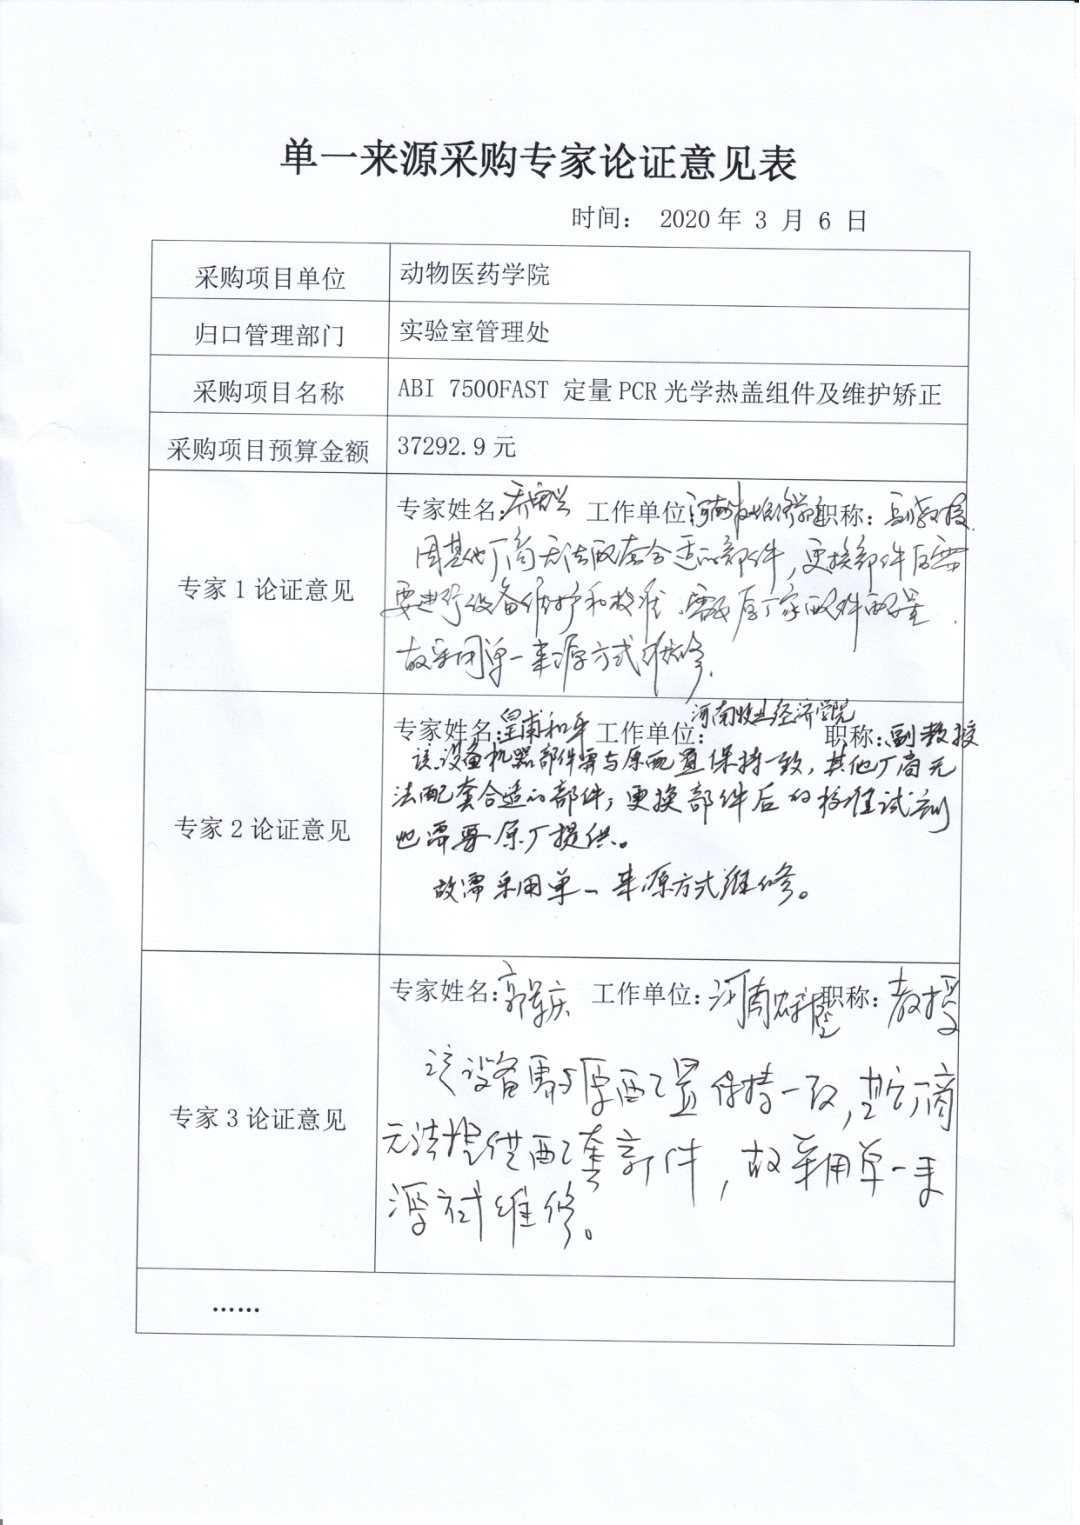 单一来源采购专家论证意见表
时间： 2020年 3 月 6 日
采购项目单位 动物医药学院
归口管理部门 实验室管理处
采购项目名称 ABI 7500FAST 定量PCR光学热盖组件及维护矫正
采购项目预算金额 37292.9元
专家1论证意见
专家姓名: 乔宏兴 工作单位: 河南牧业经济学院 职称: 副教授
因其他厂商无法配套合适的部件，更换部件后需
要进行设备维护和校准，需要原厂家的软件配置，
故采用单一来源方式维修。
专家2论证意见
专家姓名: 皇甫和平 工作单位: 河南牧业经济学院 职称: 副教授
该设备机器部件需与原配置保持一致，其他厂商无
法配套合适的部件；更换部件后的校准试剂
也需要原厂提供。
故需采用单一来源方式维修。
专家3论证意见
专家姓名: 郭军庆 工作单位: 河南农科院 职称: 教授
该设备需与原配置保持一致，其它厂商
无法提供配套部件，故采用单一来
源方式维修。
……